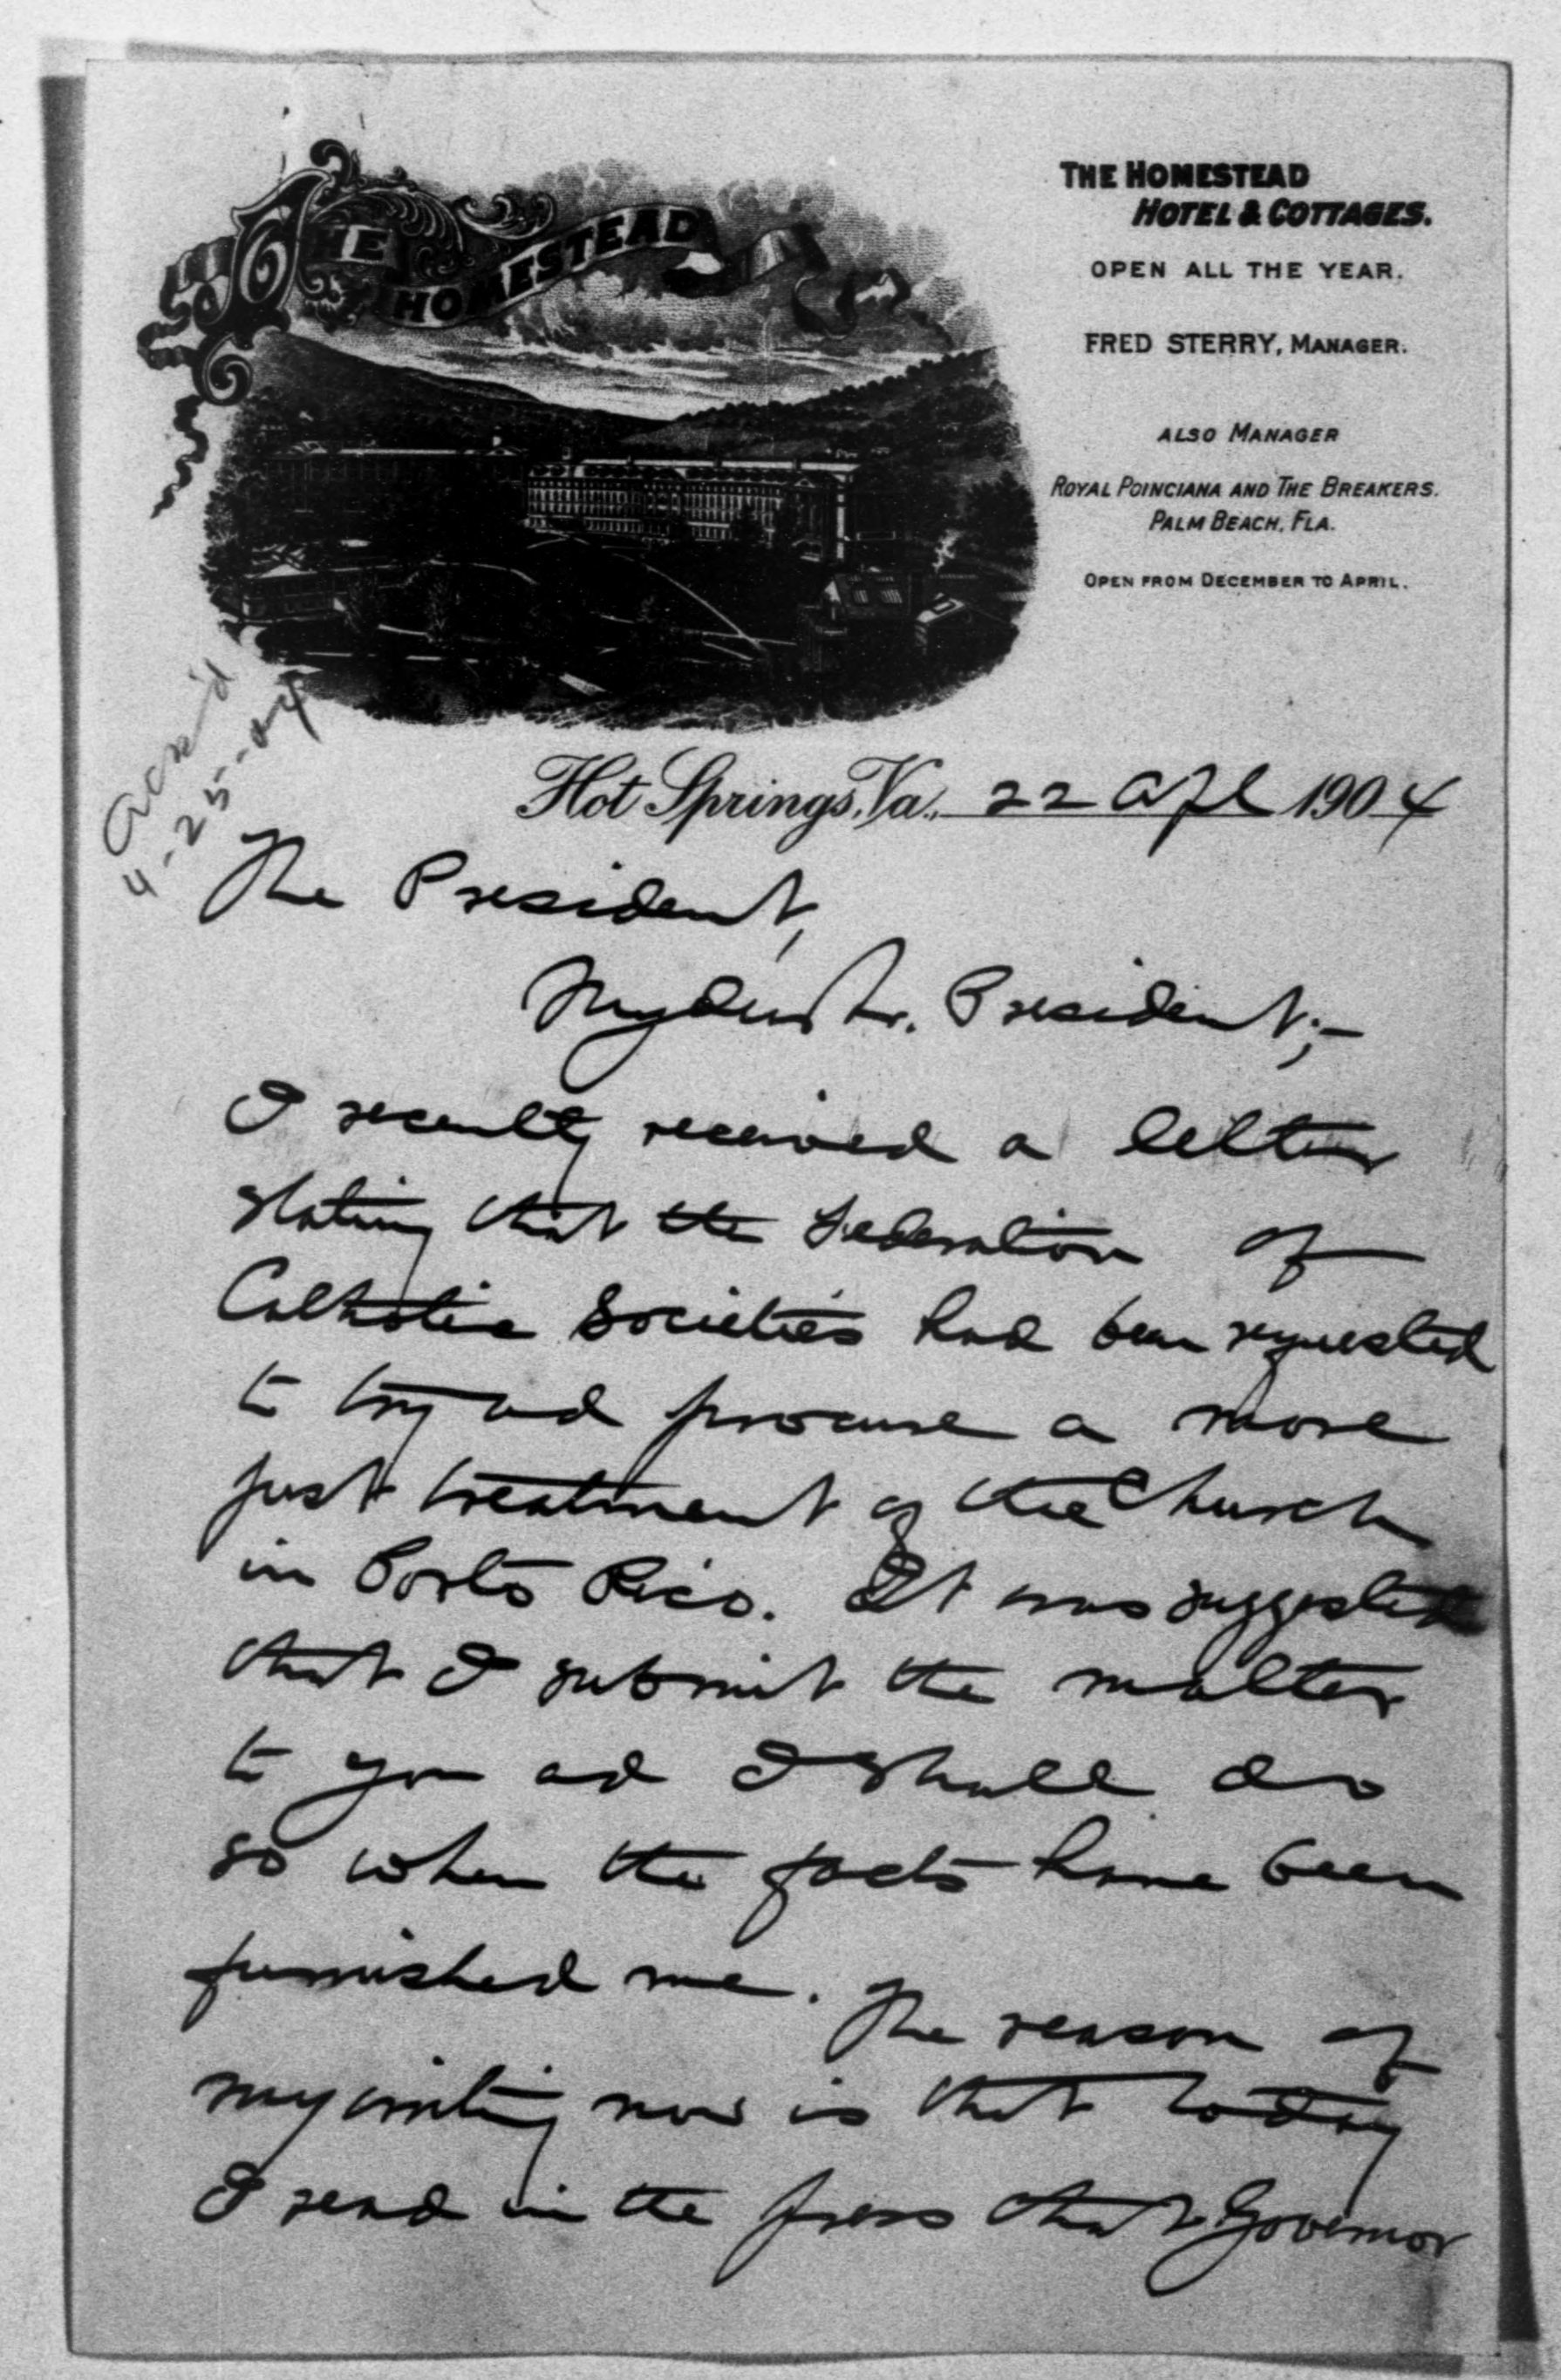 THE HOMESTEAD
THE HOMESTEAD
HOTEL & COTTAGES.
OPEN ALL THE YEAR.
FRED STERRY, MANAGER.
ALSO MANAGER
ROYAL POINCIANA AND THE BREAKERS.
PALM BEACH, FLA.
OPEN FROM DECEMBER TO APRIL.
Ack'd
4-25-04
Hot Springs, Va., 22 Apl 1904
The President,
My dear Mr. President;-
I recently received a letter
stating that the Federation of
Catholic Societies had been requested
to try and procure a more
just treatment of the Church
in Porto Rico. It was suggested
that I submit the matter
to you and I shall do
so when the facts have been
furnished me. The reason of
my writing now is that today
I read in the press that Governor